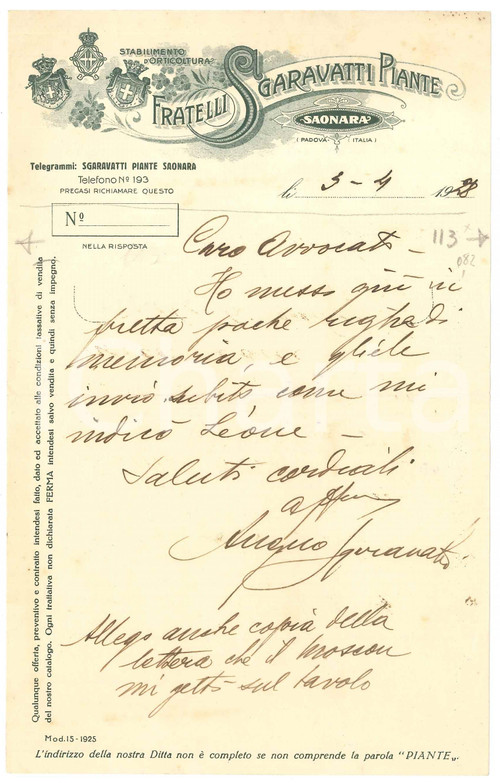 STABILIMENTO
D'ORTICOLTURA
FRATELLI SGARAVATTI PIANTE
SAONARA
(PADOVA - ITALIA)
Telegrammi: SGARAVATTI PIANTE SAONARA
Telefono Nº 193
PREGASI RICHIAMARE QUESTO
Nº
NELLA RISPOSTA
lì 3-4 1928
113
082
Caro Avvocato -
Ho messo giù in
fretta poche righe di
memoria, e gliele
invio subito come mi
indicò Leone -
Saluti cordiali
aff
Sgaravatti
Allego anche copia della
lettera che il Moscon
mi gettò sul tavolo
Qualunque offerta, preventivo e contratto intendesi fatto, dato ed accettato alle condizioni tassative di vendita
del nostro catalogo. Ogni trattativa non dichiarata FERMA intendesi salvo vendita e quindi senza impegno.
Mod. 15 - 1925
L'indirizzo della nostra Ditta non è completo se non comprende la parola "PIANTE".